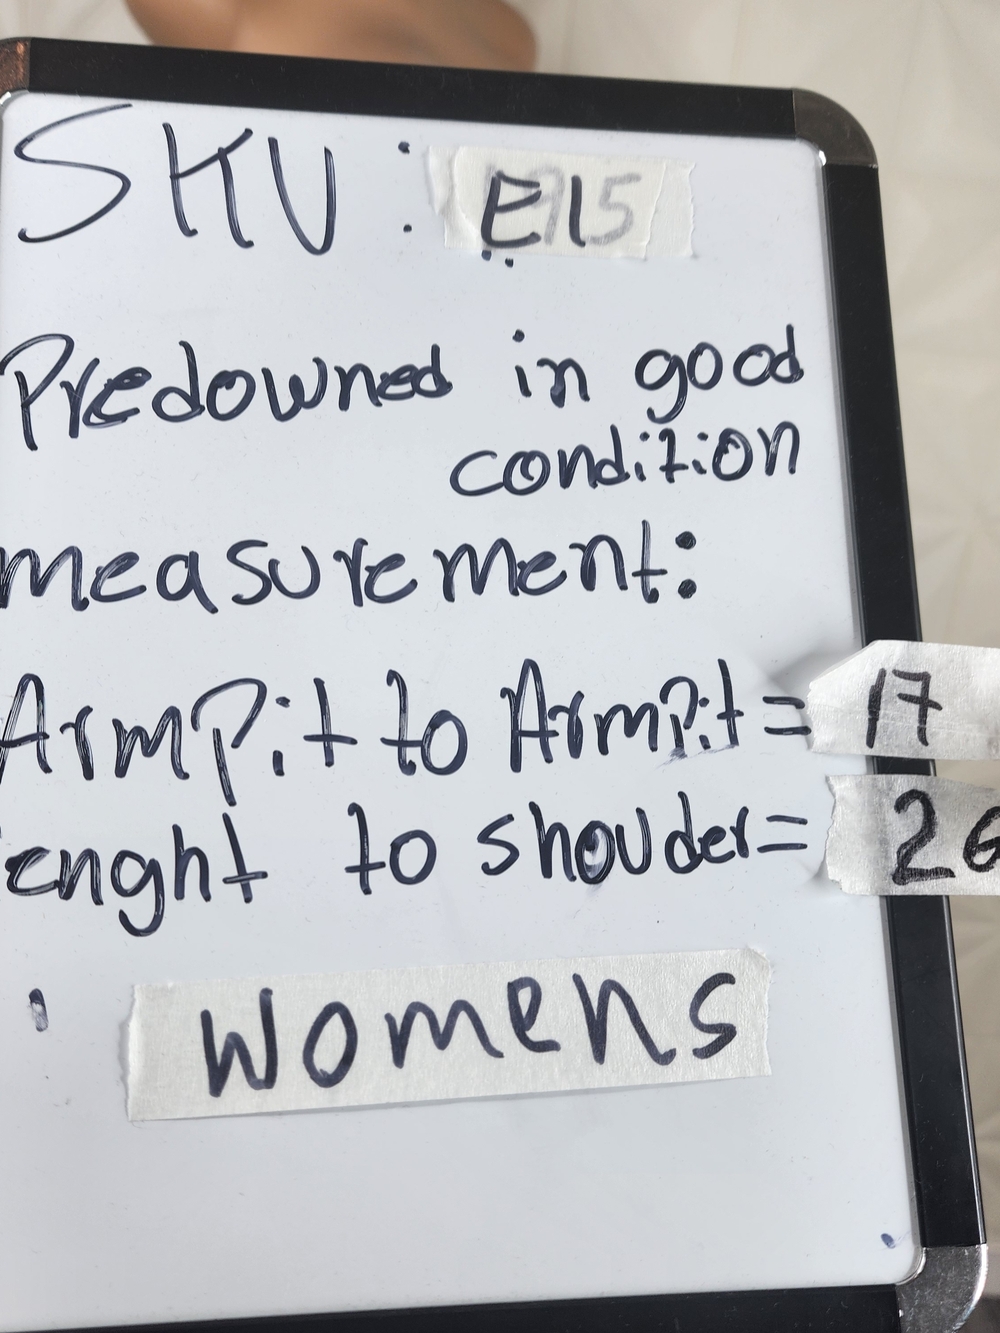 SKU: E15
Predowned in good
condition
measurement:
Armpit to Armpit = 17
enght to shouder = 26
womens